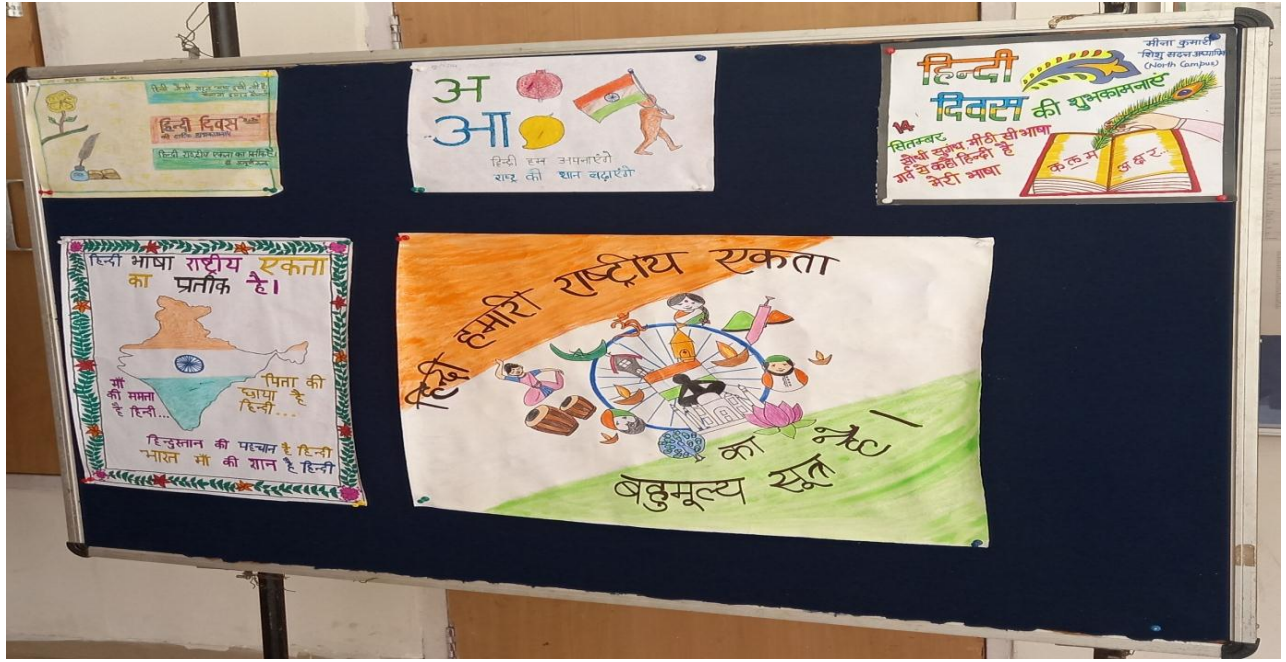 हिन्दी दिवस
हिन्दी राष्ट्रीय एकता का प्रतीक है
अ
आ
हिन्दी हम अपनाएंगे
राष्ट्र की शान बढ़ाएंगे
हिन्दी
दिवस की शुभकामनाएं
मीना कुमारी
शिशु सदन
(North Campus)
14
सितम्बर
सीधी सुगम, मीठी सी भाषा
गर्व से कहो हिन्दी है
मेरी भाषा
क ल म
अ क्ष र
हिन्दी भाषा राष्ट्रीय एकता
का प्रतीक है।
माँ
की ममता
है हिन्दी...
पिता की
छाया है
हिन्दी...
हिन्दुस्तान की पहचान है हिन्दी
भारत माँ की शान है हिन्दी
हिन्दी हमारी राष्ट्रीय एकता
का
बहुमूल्य सूत्र है।